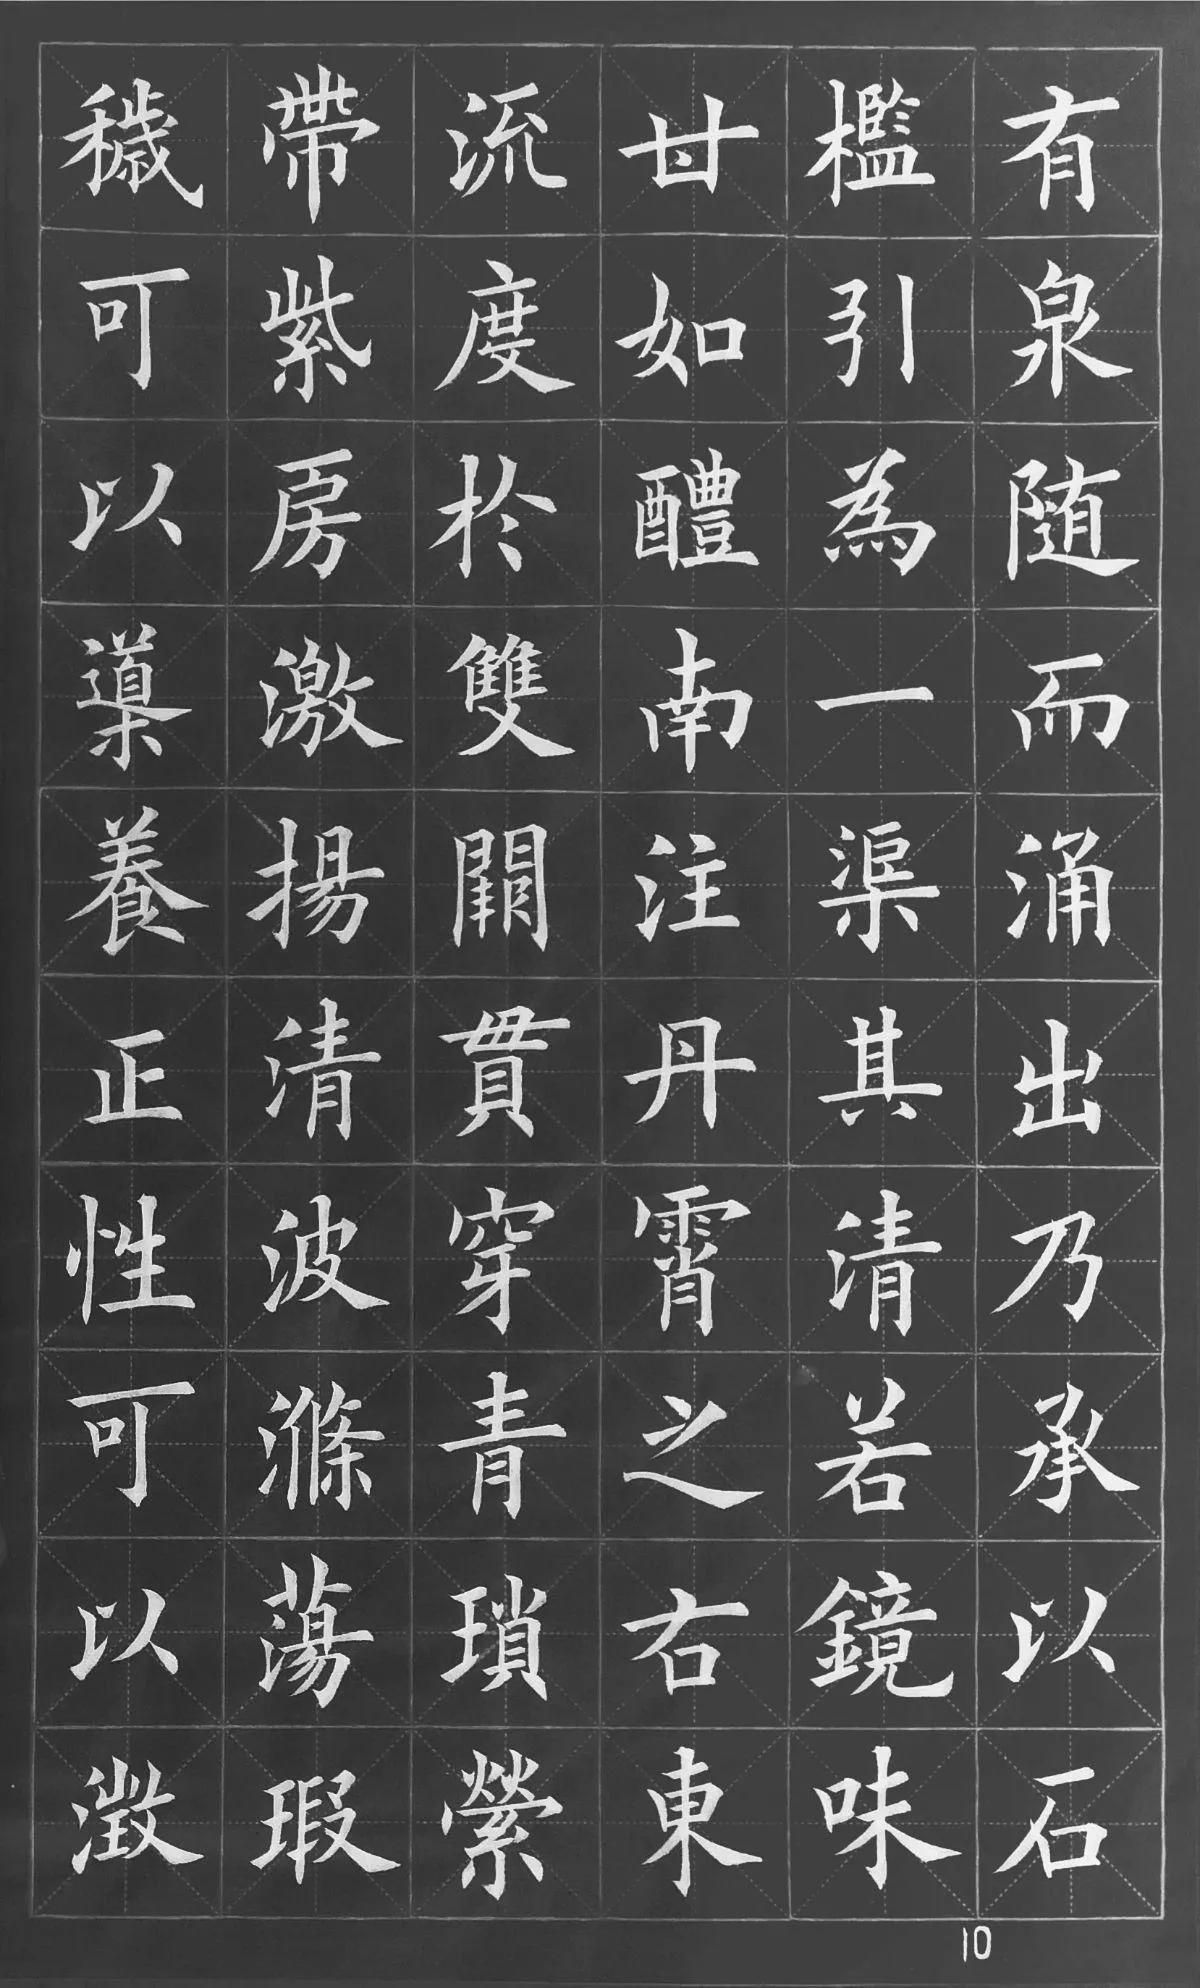 有泉随而涌出乃承以石
檻引為一渠其清若鏡味
甘如醴南注丹霄之右東
流度於雙闕貫穿青瑣縈
帶紫房激揚清波滌蕩瑕
穢可以導養正性可以澂
10